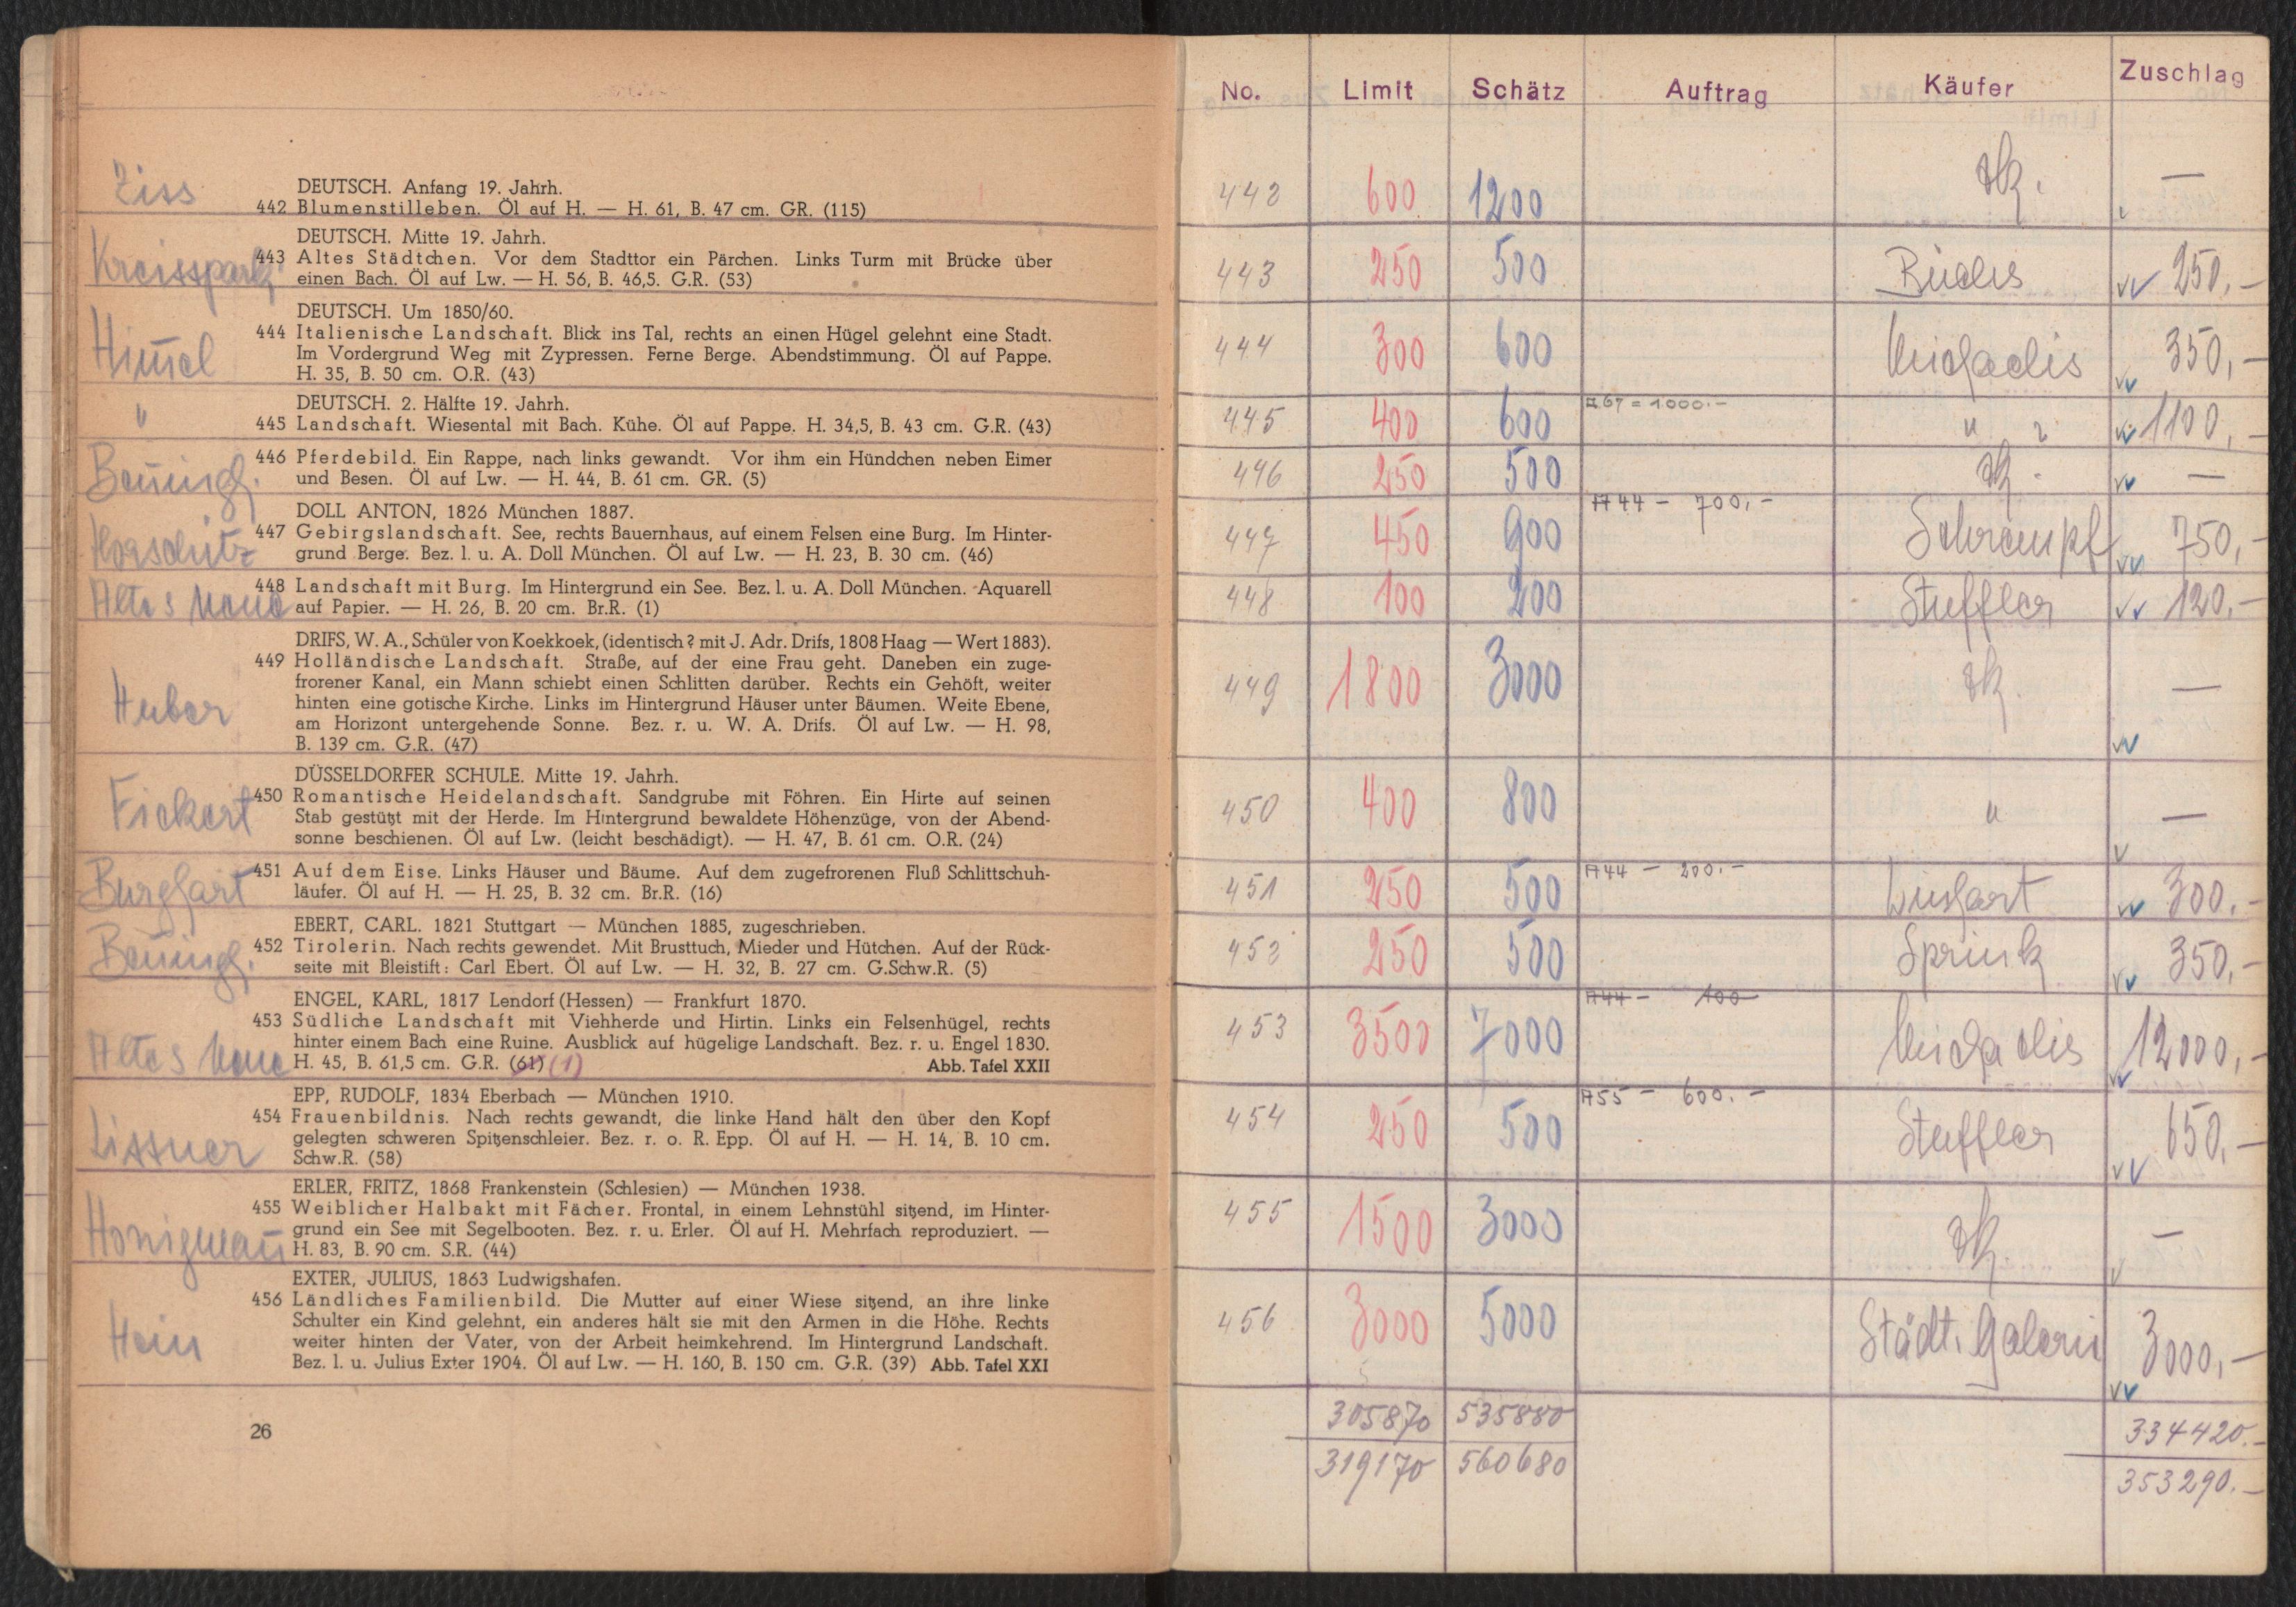 Ziss
DEUTSCH. Anfang 19. Jahrh.
442 Blumenstilleben. Öl auf H. — H. 61, B. 47 cm. GR. (115)
DEUTSCH. Mitte 19. Jahrh.
443 Altes Städtchen. Vor dem Stadttor ein Pärchen. Links Turm mit Brücke über
einen Bach. Öl auf Lw. — H. 56, B. 46,5. G.R. (53)
DEUTSCH. Um 1850/60.
Himel
444 Italienische Landschaft. Blick ins Tal, rechts an einen Hügel gelehnt eine Stadt.
Im Vordergrund Weg mit Zypressen. Ferne Berge. Abendstimmung. Öl auf Pappe.
H. 35, B. 50 cm. O.R. (43)
"
DEUTSCH. 2. Hälfte 19. Jahrh.
445 Landschaft. Wiesental mit Bach. Kühe. Öl auf Pappe. H. 34,5, B. 43 cm. G.R. (43)
446 Pferdebild. Ein Rappe, nach links gewandt. Vor ihm ein Hündchen neben Eimer
und Besen. Öl auf Lw. — H. 44, B. 61 cm. GR. (5)
DOLL ANTON, 1826 München 1887.
Horschitz
447 Gebirgslandschaft. See, rechts Bauernhaus, auf einem Felsen eine Burg. Im Hinter-
grund Berge. Bez. l. u. A. Doll München. Öl auf Lw. — H. 23, B. 30 cm. (46)
448 Landschaft mit Burg. Im Hintergrund ein See. Bez. l. u. A. Doll München. Aquarell
auf Papier. — H. 26, B. 20 cm. Br.R. (1)
DRIFS, W. A., Schüler von Koekkoek, (identisch? mit J. Adr. Drifs, 1808 Haag — Wert 1883).
449 Holländische Landschaft. Straße, auf der eine Frau geht. Daneben ein zuge-
frorener Kanal, ein Mann schiebt einen Schlitten darüber. Rechts ein Gehöft, weiter
Huber
hinten eine gotische Kirche. Links im Hintergrund Häuser unter Bäumen. Weite Ebene,
am Horizont untergehende Sonne. Bez. r. u. W. A. Drifs. Öl auf Lw. — H. 98,
B. 139 cm. G.R. (47)
DÜSSELDORFER SCHULE. Mitte 19. Jahrh.
Fickert
450 Romantische Heidelandschaft. Sandgrube mit Föhren. Ein Hirte auf seinen
Stab gestützt mit der Herde. Im Hintergrund bewaldete Höhenzüge, von der Abend-
sonne beschienen. Öl auf Lw. (leicht beschädigt). — H. 47, B. 61 cm. O.R. (24)
Burghart
451 Auf dem Eise. Links Häuser und Bäume. Auf dem zugefrorenen Fluß Schlittschuh-
läufer. Öl auf H. — H. 25, B. 32 cm. Br.R. (16)
EBERT, CARL. 1821 Stuttgart — München 1885, zugeschrieben.
452 Tirolerin. Nach rechts gewendet. Mit Brusttuch, Mieder und Hütchen. Auf der Rück-
seite mit Bleistift: Carl Ebert. Öl auf Lw. — H. 32, B. 27 cm. G.Schw.R. (5)
ENGEL, KARL, 1817 Lendorf (Hessen) — Frankfurt 1870.
453 Südliche Landschaft mit Viehherde und Hirtin. Links ein Felsenhügel, rechts
hinter einem Bach eine Ruine. Ausblick auf hügelige Landschaft. Bez. r. u. Engel 1830.
H. 45, B. 61,5 cm. G.R. (61) (1) Abb. Tafel XXII
EPP, RUDOLF, 1834 Eberbach — München 1910.
Lissner
454 Frauenbildnis. Nach rechts gewandt, die linke Hand hält den über den Kopf
gelegten schweren Spitzenschleier. Bez. r. o. R. Epp. Öl auf H. — H. 14, B. 10 cm.
Schw.R. (58)
ERLER, FRITZ, 1868 Frankenstein (Schlesien) — München 1938.
Honigmañ
455 Weiblicher Halbakt mit Fächer. Frontal, in einem Lehnstühl sitzend, im Hinter-
grund ein See mit Segelbooten. Bez. r. u. Erler. Öl auf H. Mehrfach reproduziert. —
H. 83, B. 90 cm. S.R. (44)
EXTER, JULIUS, 1863 Ludwigshafen.
Hein
456 Ländliches Familienbild. Die Mutter auf einer Wiese sitzend, an ihre linke
Schulter ein Kind gelehnt, ein anderes hält sie mit den Armen in die Höhe. Rechts
weiter hinten der Vater, von der Arbeit heimkehrend. Im Hintergrund Landschaft.
Bez. l. u. Julius Exter 1904. Öl auf Lw. — H. 160, B. 150 cm. G.R. (39) Abb. Tafel XXI
26
No. Limit Schätz Auftrag Käufer Zuschlag
442 600 1200 —
443 250 500 250,-
444 300 600 Michaelis 350,-
445 400 600 67 = 1000.- " 1100,-
446 250 500 —
447 450 900 44 - 700,- Schrempf 750,-
448 100 200 Stuffler 120,-
449 1800 3000 —
450 400 800 " —
451 250 500 44 - 200.- Winhart 300.-
452 250 500 Sprink 350,-
453 3500 7000 44 - 100 Michaelis 12000,-
454 250 500 55 - 600.- Stuffler 650,-
455 1500 3000 —
456 3000 5000 Städt. Galerie 3000,-
305870 535880 334420.-
319170 560680 353290.-